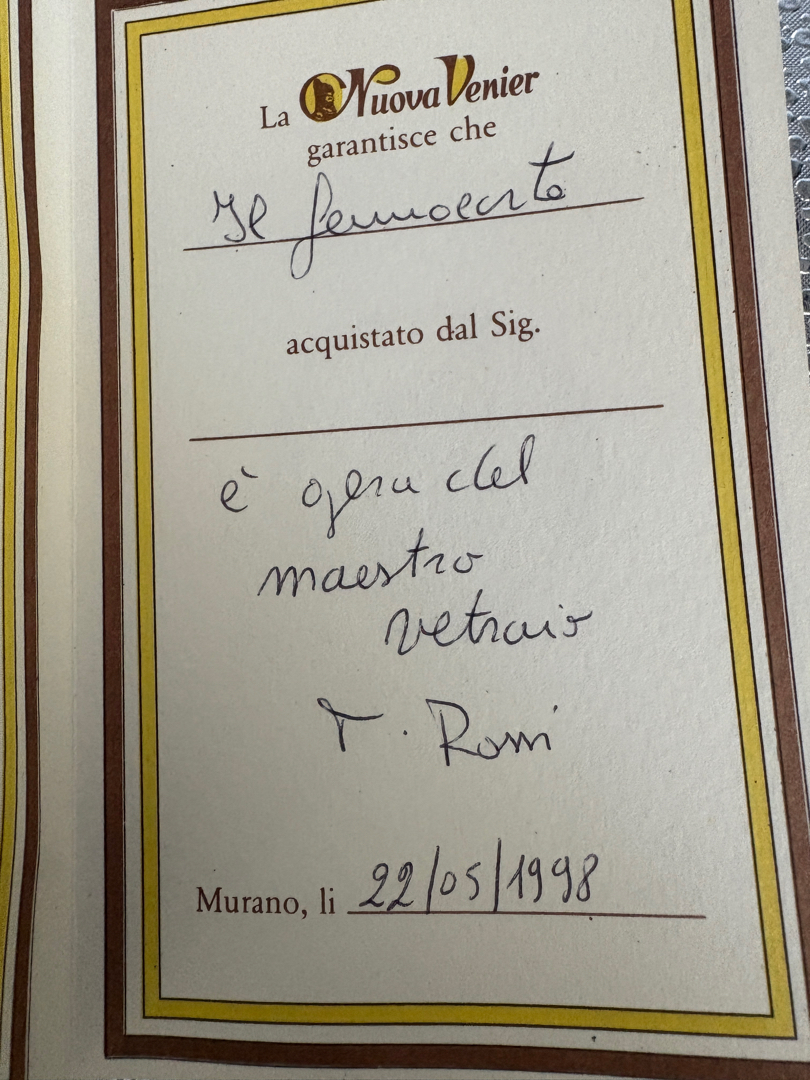 La Nuova Venier
garantisce che
Il fermacarte
acquistato dal Sig.
è opera del
maestro
vetraio
T. Rossi
Murano, li 22/05/1998